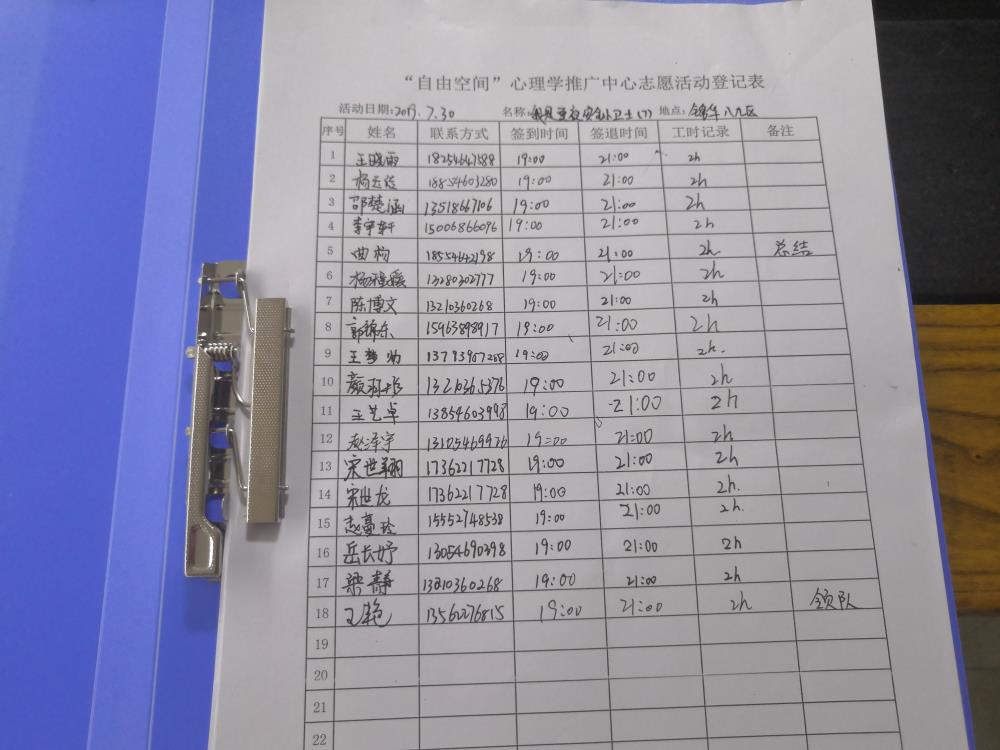 “自由空间”心理学推广中心志愿活动登记表
活动日期:2019.7.30 名称: 安全小卫士(7) 地点: 锦华八九区
序号 姓名 联系方式 签到时间 签退时间 工时记录 备注
1 王晓雨 18254647588 19:00 21:00 2h
2 18854603280 19:00 21:00 2h
3 邵楚涵 13518667106 19:00 21:00 2h
4 李宇轩 15006866096 19:00 21:00 2h
5 曲构 18554642198 19:00 21:00 2h 总结
6 13280302777 19:00 21:00 2h
7 陈博文 13210360268 19:00 21:00 2h
8 郭锦东 15963898917 19:00 21:00 2h
9 13793907288 19:00 21:00 2h.
10 13210365376 19:00 21:00 2h
11 王艺卓 13854603998 19:00 -21:00 2h
12 赵泽宇 13105469926 19:00 21:00 2h
13 宋世翔 17362217728 19:00 21:00 2h
14 宋世龙 17362217728 19:00 21:00 2h.
15 赵蔓玲 15552748538 19:00 21:00 2h.
16 岳长妤 13054690398 19:00 21:00 2h
17 梁静 13210360268 19:00 21:00 2h
18 王艳 13562276815 19:00 21:00 2h 领队
19
20
21
22